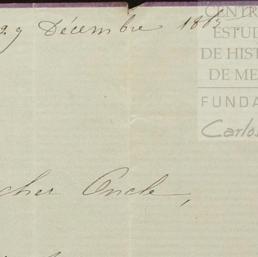 29 Décembre
CENTR
ESTU
DE HIST
DE ME
FUNDA
Carlos
cher Oncle,